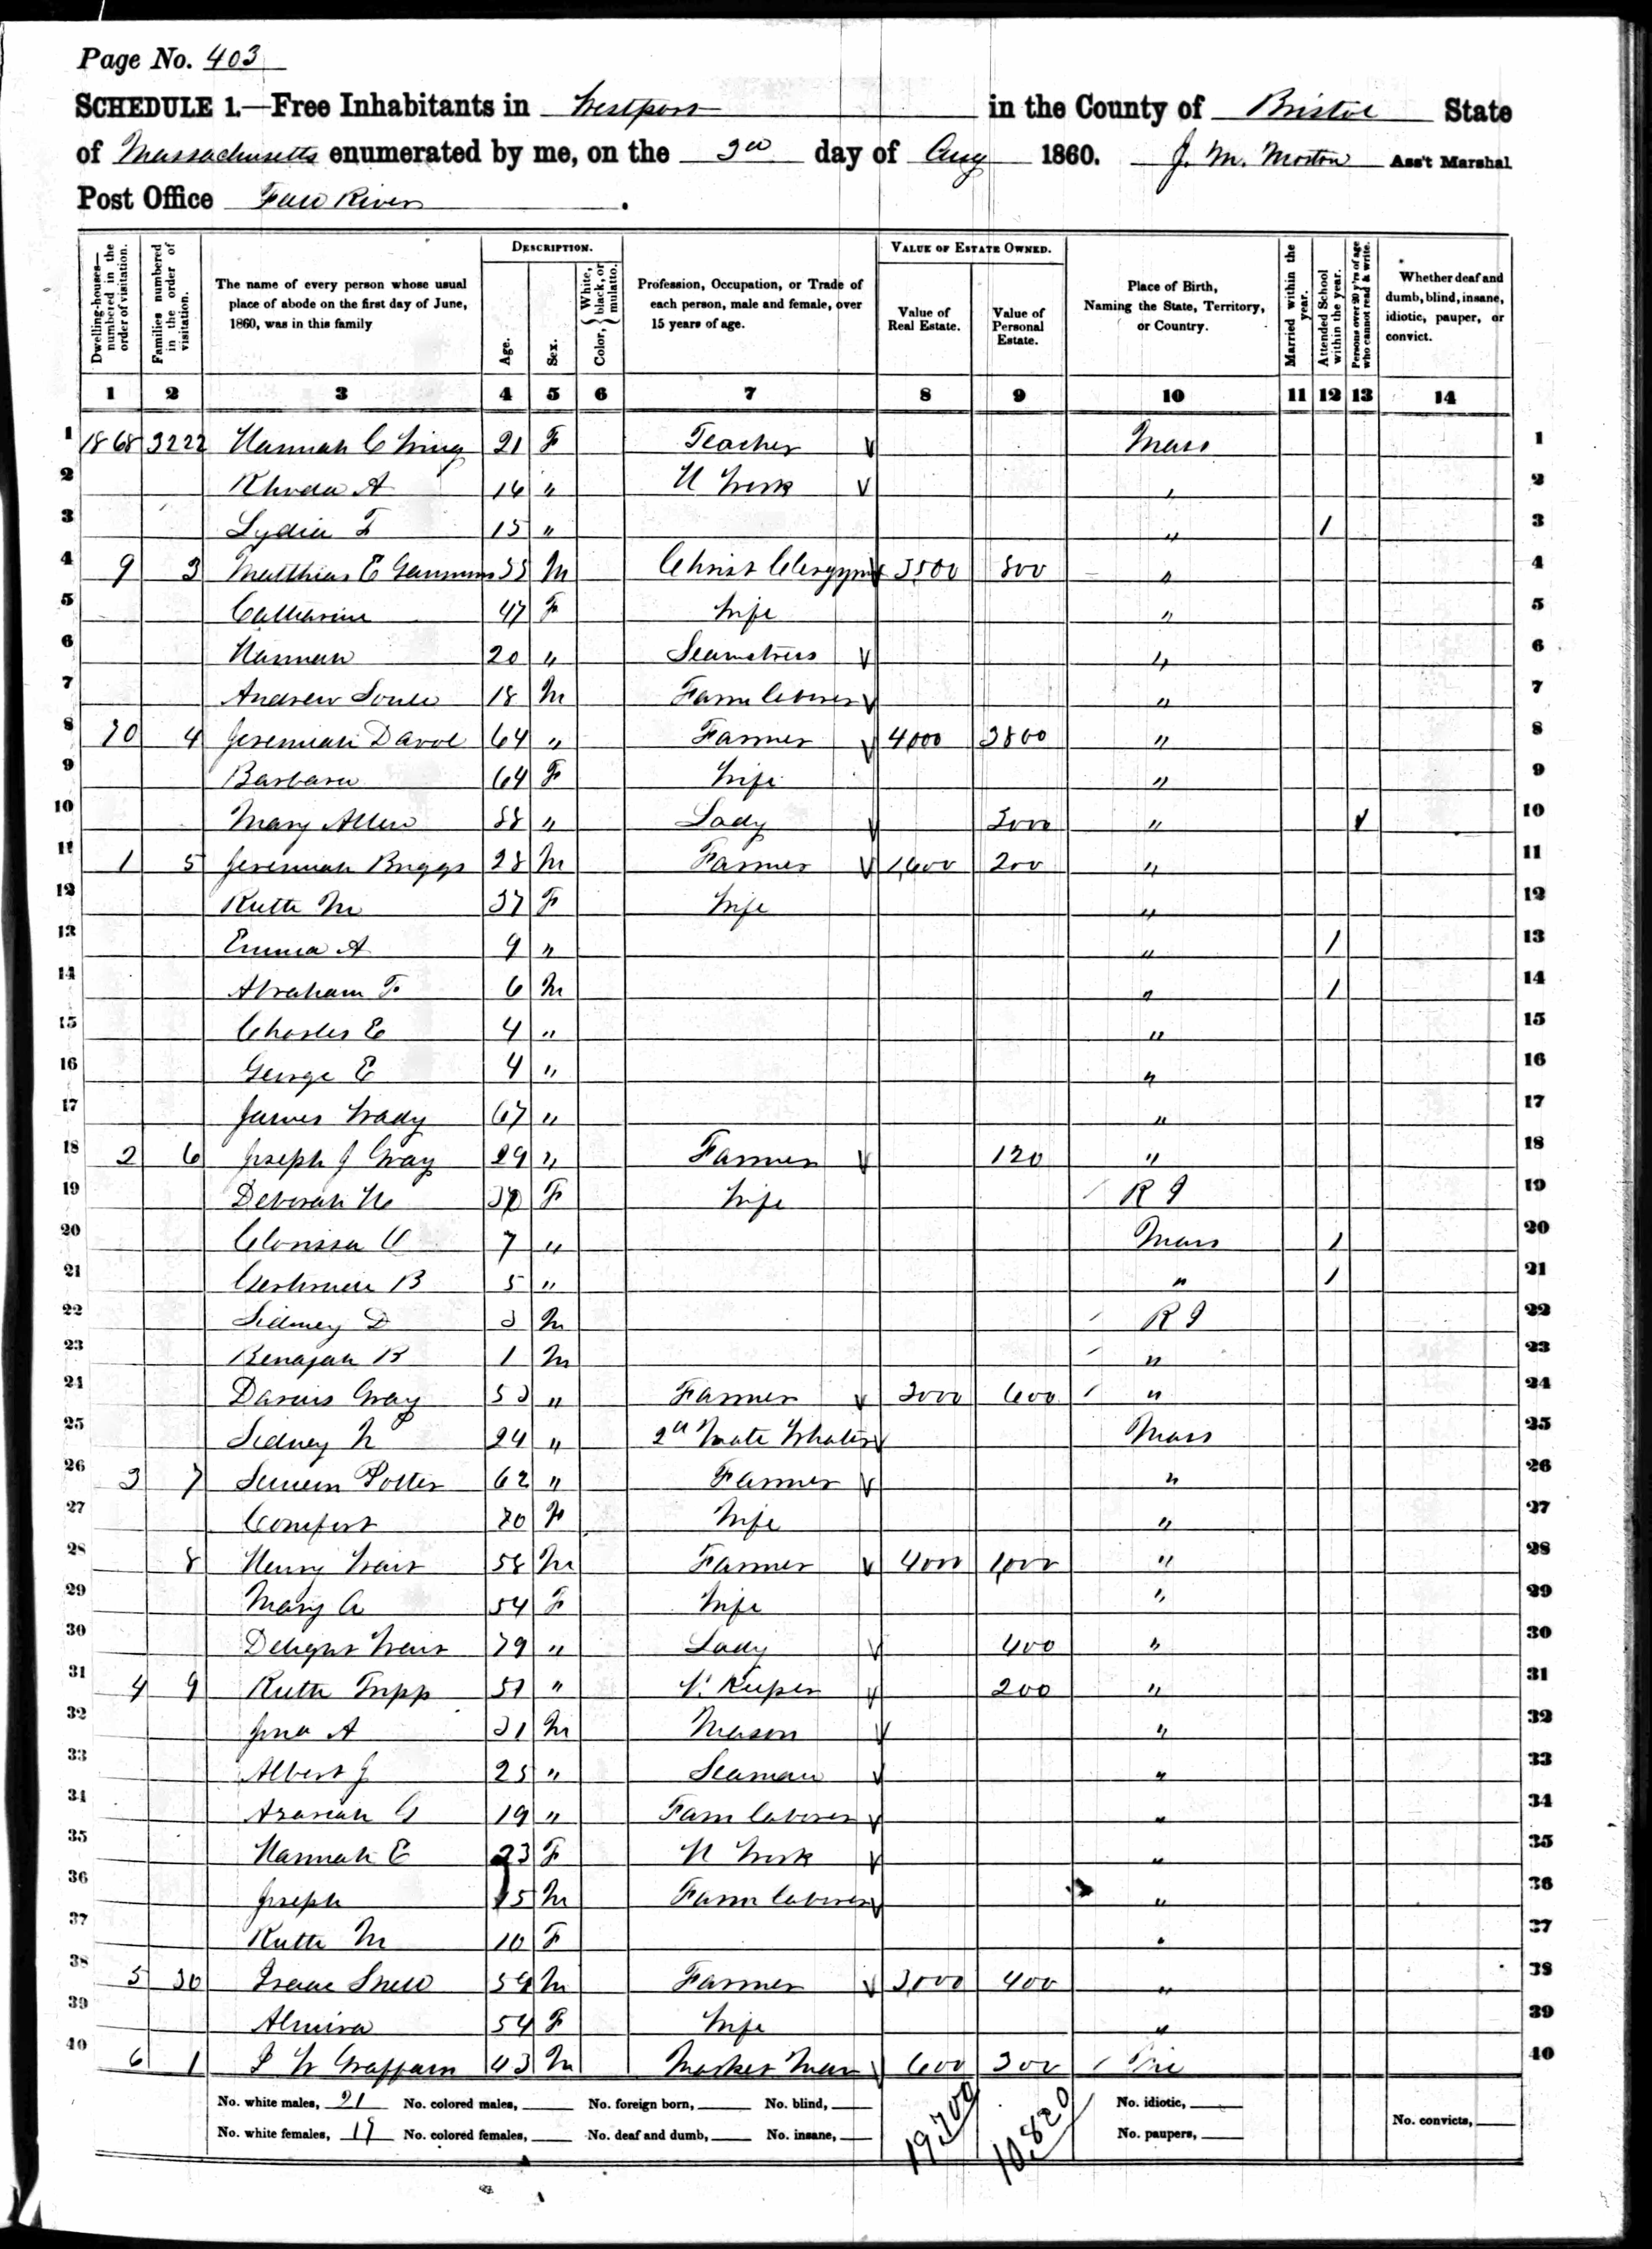 Page No. 403
SCHEDULE 1.—Free Inhabitants in Westport in the County of Bristol State
of Massachusetts enumerated by me, on the 3d day of Aug 1860. J. M. Morton Ass't Marshal
Post Office Fall River .
Dwelling-houses—numbered in the order of visitation.
Families numbered in the order of visitation.
The name of every person whose usual place of abode on the first day of June, 1860, was in this family
DESCRIPTION.
Age.
Sex.
Color, { White, black, or mulatto.
Profession, Occupation, or Trade of each person, male and female, over 15 years of age.
VALUE OF ESTATE OWNED.
Value of Real Estate.
Value of Personal Estate.
Place of Birth, Naming the State, Territory, or Country.
Married within the year.
Attended School within the year.
Persons over 20 y'rs of age who cannot read & write.
Whether deaf and dumb, blind, insane, idiotic, pauper, or convict.
1 2 3 4 5 6 7 8 9 10 11 12 13 14
1 1868 3222 Hannah C 21 F Teacher Mass 1
2 Rhoda A 16 " H Work " 2
3 Lydia F 15 " " / 3
4 9 3 Matthias E Gammons M Christ Clergyman " 4
5 Catharine 47 F Wife " 5
6 Hannah 20 " Seamstress " 6
7 Andrew Soule 18 M Farm laborer " 7
8 70 4 Jeremiah Davol 64 " Farmer 4000 3800 " 8
9 Barbara 64 F Wife " 9
10 Mary Allen 88 " Lady " 10
11 1 5 Jeremiah Briggs 28 M Farmer 1,600 200 " 11
12 Ruth M 37 F Wife " 12
13 Emma A 9 " " / 13
14 Abraham F 6 M " / 14
15 Charles E 4 " " 15
16 George E 4 " " 16
17 James Wady 67 " " 17
18 2 6 Joseph J Gray 29 " Farmer 120 " 18
19 Deborah F Wife R I 19
20 Clarissa 7 " Mass / 20
21 B 5 " " / 21
22 Sidney D 3 M R I 22
23 Benajah B 1 M " 23
24 Darius Gray 53 " Farmer 3000 600 " 24
25 Sidney N 24 " 2d Mate Whaler Mass 25
26 3 7 Potter 62 " Farmer " 26
27 Comfort 70 F Wife " 27
28 8 Henry Wait 58 M Farmer 4000 1,000 " 28
29 Mary A 54 F Wife " 29
30 Delight Wait 79 " Lady 400 " 30
31 4 9 Ruth Tripp 57 " Keeper 200 " 31
32 A 31 M Mason " 32
33 Albert J 25 " Seaman " 33
34 Azariah G 19 " Farm laborer " 34
35 Hannah E 23 F H Work " 35
36 Joseph 15 M Farm laborer " 36
37 Ruth M 10 F " 37
38 5 30 Isaac Snell 54 M Farmer 3,000 400 " 38
39 Almira 54 F Wife " 39
40 6 1 43 M Market Man 600 300 Me 40
No. white males, 21 No. colored males, No. foreign born, No. blind, No. idiotic,
No. white females, 19 No. colored females, No. deaf and dumb, No. insane, No. paupers, No. convicts,
19,700 10,820